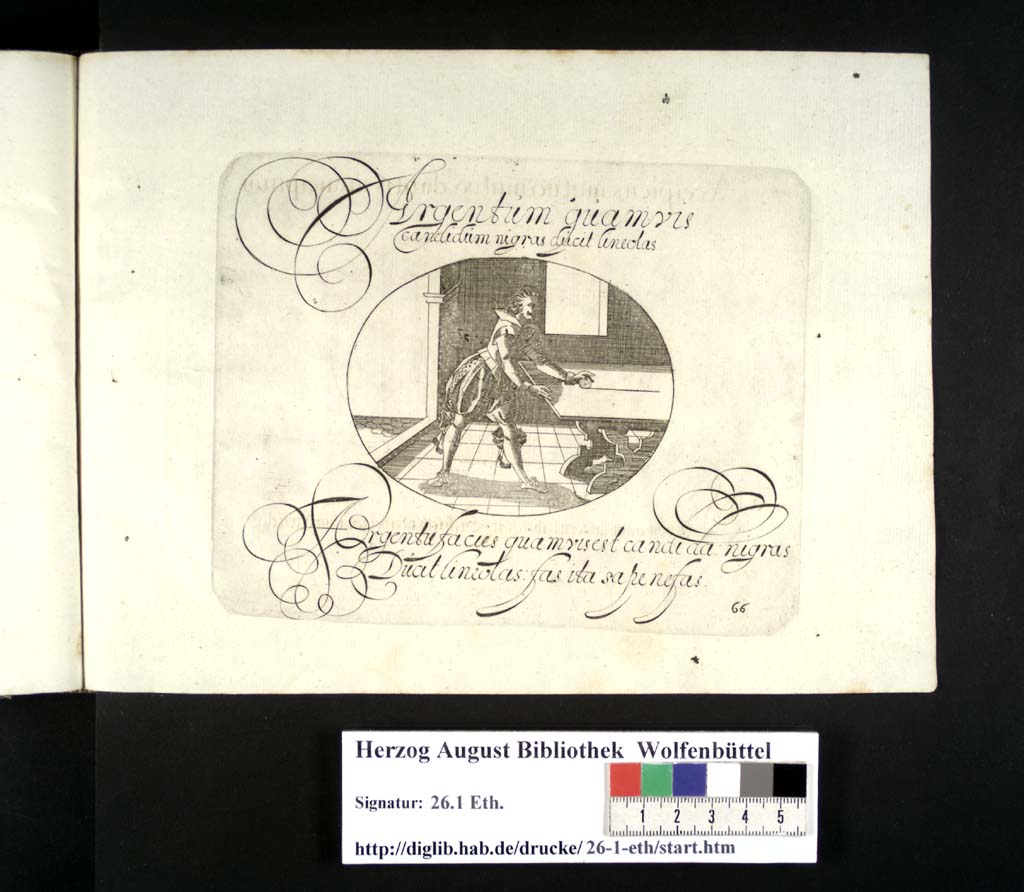 Argentum quamvis
candidum nigras ducit lineolas
Argentū facies quamvis est candida: nigras
Ducit lineolas: fas ita sæpe nefas.
66
Herzog August Bibliothek Wolfenbüttel
Signatur: 26.1 Eth.
1 2 3 4 5
http://diglib.hab.de/drucke/ 26-1-eth/start.htm